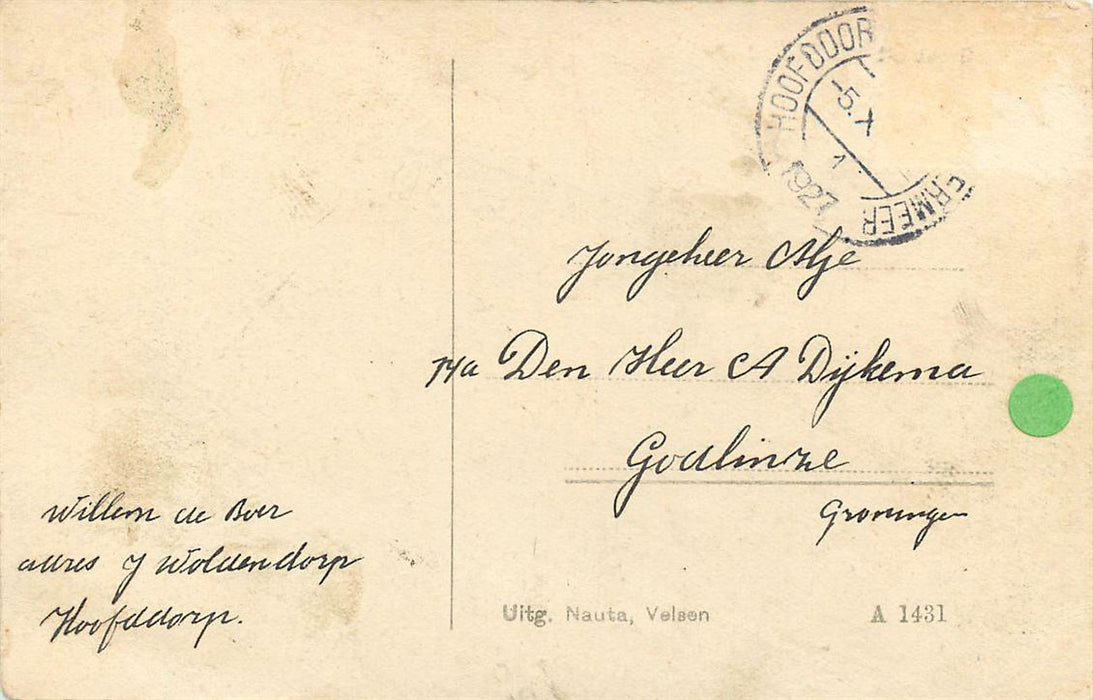 HOOFDDOR
-5.X
1
1927
ERMEER
Jongeheer Alje
p/a Den Heer A Dijkema
Godlinze
Groningen
Willem de Boer
adres J Woldendorp
Hoofddorp.
Uitg. Nauta, Velsen
A 1431